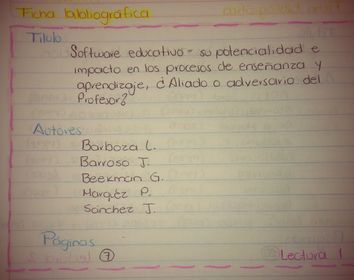 Ficha bibliográfica
Título
Software educativo - su potencialidad e
impacto en los procesos de enseñanza y
aprendizaje, ¿Aliado o adversario del
Profesor?
Autores
Barboza L.
Barroso J.
Beekman G.
P.
Sánchez J.
Páginas
7
Lectura 1